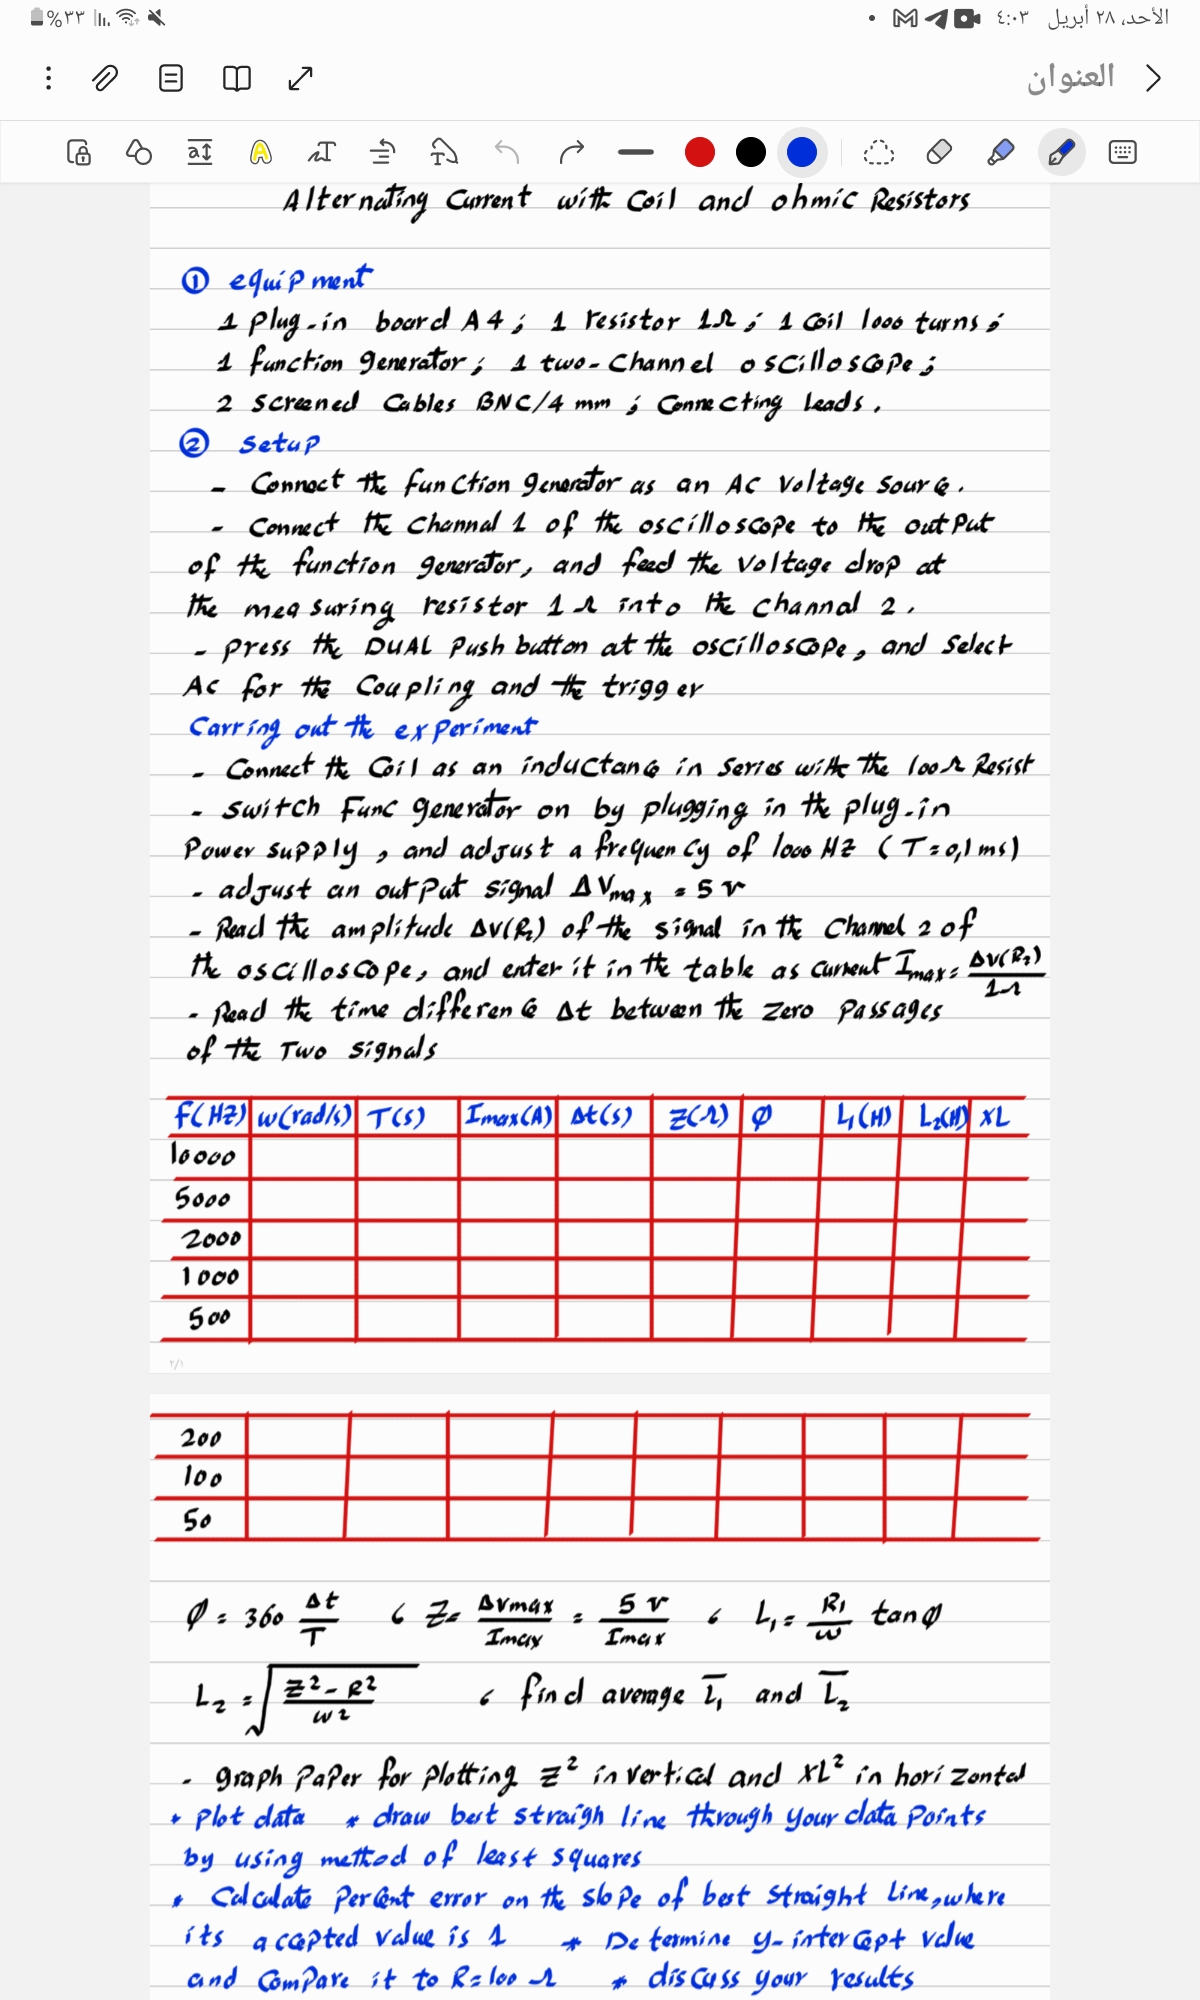 ٣٣%
الأحد، ٢٨ أبريل ٤:٠٣
العنوان
Alternating Current with Coil and ohmic Resistors
① equipment
1 Plug-in board A4 ; 1 resistor 1Ω ; 1 Coil 1000 turns ;
1 function generator ; 1 two-Channel oscilloscope ;
2 Screened Cables BNC/4 mm ; Connecting leads .
② Setup
- Connect the function generator as an AC Voltage Source .
- Connect the Channel 1 of the oscilloscope to the output
of the function generator, and feed the voltage drop at
the measuring resistor 1 Ω into the channel 2 .
- press the DUAL Push button at the oscilloscope, and Select
AC for the Coupling and the trigger
Carring out the experiment
- Connect the Coil as an inductance in Series with the 100Ω Resist
- Switch Func Generator on by plugging in the plug-in
Power supply , and adjust a frequency of 1000 HZ ( T=0,1 ms)
- adjust an output signal ΔVmax = 5 V
- Read the amplitude ΔV(R2) of the signal in the Channel 2 of
the oscilloscope, and enter it in the table as current Imax = ΔV(R2)/1Ω
- Read the time difference Δt between the Zero Passages
of the Two signals
f(HZ) w(rad/s) T(s) Imax(A) Δt(s) Z(Ω) Ø L1(H) L2(H) XL
10000
5000
2000
1000
500
٢/١
200
100
50
Ø = 360 Δt/T ، Z = ΔVmax/Imax = 5 V/Imax ، L1 = R1/w tanØ
L2 = √(Z²-R²/w²) ، find average L̅1 and L̅2
- graph PaPer for Plotting Z² in vertical and XL² in horizontal
* Plot data * draw best straigh line through your data Points
by using method of least squares
* Calculate Percent error on the slope of best straight Line, where
its accepted value is 1 * Determine y-intercept value
and Compare it to R=100 Ω * discuss your results